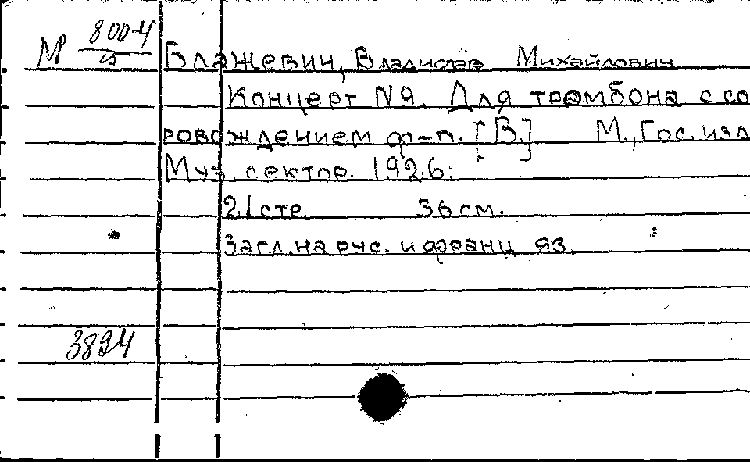 М 800-4
Блажевич, Владислав Михайлович
Концерт №9. Для тромбона с со
ровождением ф-п. [В.] М., Гос. изд
Муз. сектор. 1926.
21 стр. 36 см.
Загл. на рус. и франц. яз.
3824